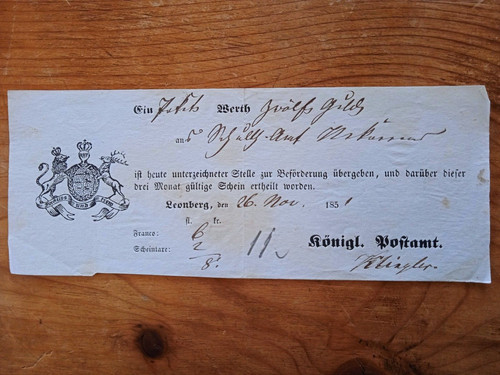 Ein Pakit Werth Zwölf Guld
an Schulth. Amt
ist heute unterzeichneter Stelle zur Beförderung übergeben, und darüber dieser
drei Monat gültige Schein ertheilt worden.
Leonberg, den 26. Nov. 1851
fl. kr.
Franco: 6
Scheintaxe: 2
8.
11
Königl. Postamt.